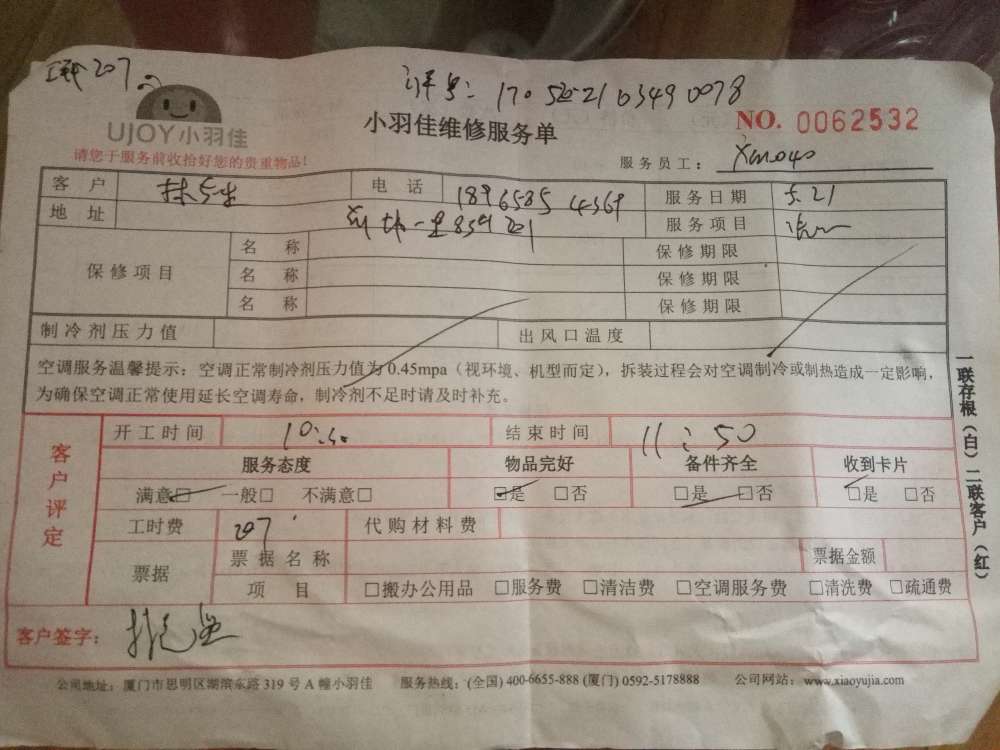 207
单号：17052103490078
UJOY小羽佳
小羽佳维修服务单
NO. 0062532
请您于服务前收拾好您的贵重物品！
服务员工： Xm040
客 户 林先生 电 话 18965854369 服务日期 5.21
地 址 服务项目
保修项目 名 称 保修期限
名 称 保修期限
名 称 保修期限
制冷剂压力值 出风口温度
空调服务温馨提示：空调正常制冷剂压力值为0.45mpa（视环境、机型而定），拆装过程会对空调制冷或制热造成一定影响，
为确保空调正常使用延长空调寿命，制冷剂不足时请及时补充。
客户评定
开工时间 结束时间 11：50
服务态度 物品完好 备件齐全 收到卡片
满意□ 一般□ 不满意□ □是 □否 □是 □否 □是 □否
工时费 207 代购材料费
票据 票据名称 票据金额
项 目 □搬办公用品 □服务费 □清洁费 □空调服务费 □清洗费 □疏通费
客户签字：
一联存根（白）二联客户（红）
公司地址：厦门市思明区湖滨东路319号A幢小羽佳 服务热线：(全国) 400-6655-888 (厦门) 0592-5178888 公司网站：www.xiaoyujia.com